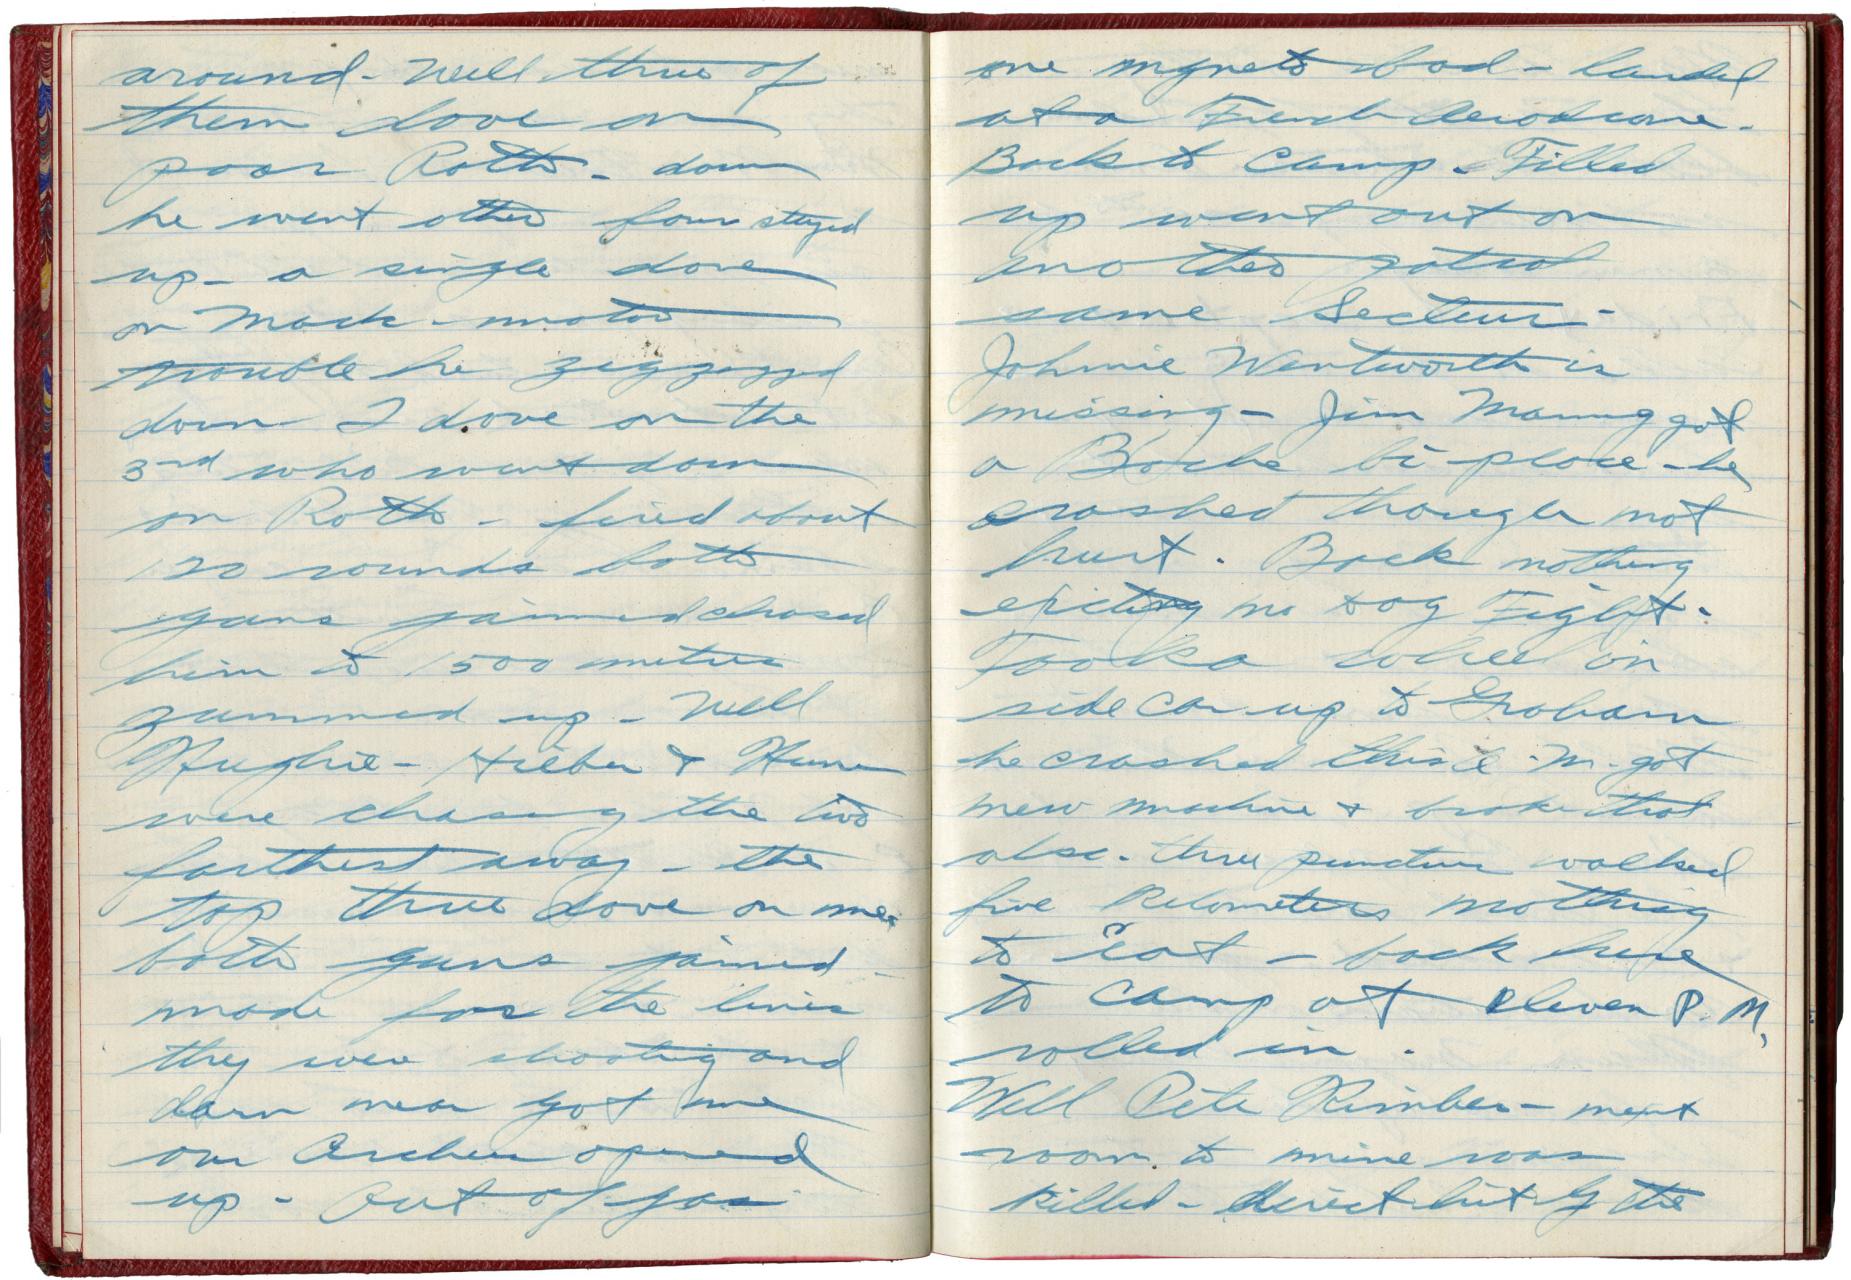 around - Well three of
them dove on
poor Roth - down
he went other four stayed
up - a single dove
on Mack - motor
trouble he zigzagged
down I dove on the
3rd who went down
on Roth - fired about
120 rounds both
guns jammed chased
him to 1500 metres
zummed up - Well
Hughie - &
were chasing the two
farthest away - the
top three dove on me
both guns jammed -
made for the lines
they were shooting and
darn near got me
our Archies opened
up - Out of gas
one mgneto bad - landed
at a French Aerodrome.
Back to Camp - Filled
up went out on
another patrol
same Secteur -
Johnnie Wentworth is
missing - Jim Manning got
a Boche bi-place - he
crashed though not
hurt. Back nothing
no Dog Fight.
Took a wheel in
side car up to Graham
he crashed this a.m. got
new machine & broke that
also. three puncture walked
five Kilometers nothing
to eat - back here
to camp at eleven P.M.
rolled in.
Well Pete Kimber - next
room to mine was
killed - direct hit by the